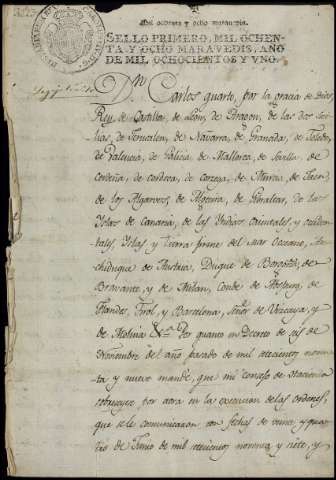 Mil ochenta y ocho maravedis.
SELLO PRIMERO, MIL OCHEN-
TA Y OCHO MARAVEDIS, AÑO
DE MIL OCHOCIENTOS Y UNO.
Dn. Carlos quarto, por la gracia de Dios,
Rey de Castilla, de Leon, de Aragon, de las dos Sici-
lias, de Jerusalen, de Navarra, de Granada, de Toledo,
de Valencia, de Galicia, de Mallorca, de Sevilla, de
Cerdeña, de Cordova, de Corzega, de Murcia, de Jaen,
de los Algarves, de Algecira, de Gibraltar, de las
Yslas de Canaria, de las Yndias orientales y occiden-
tales, Yslas y tierra firme del Mar Oceano, Ar-
chiduque de Austria, Duque de Borgoña, de
Bravante, y de Milan, Conde de Abspurg, de
Flandes, Tirol, y Barcelona, Señor de Vizcaya, y
de Molina &a. Por quanto en Decreto de seis de
Noviembre del año pasado de mil setecientos noven-
ta y nueve mandé, que mi Consejo de Hacienda
por ahora en la execucion de las ordenes,
que se le comunicaron con fechas de veinte y qua-
tro de Junio de mil setecientos noventa y siete, y